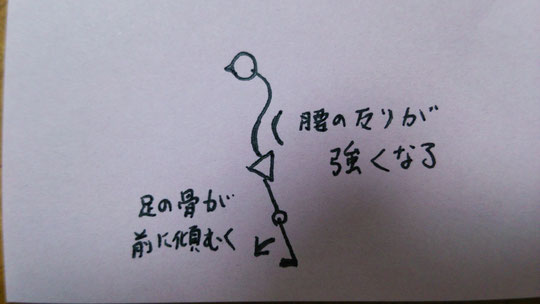 腰の反りが
強くなる
足の骨が
前に傾むく